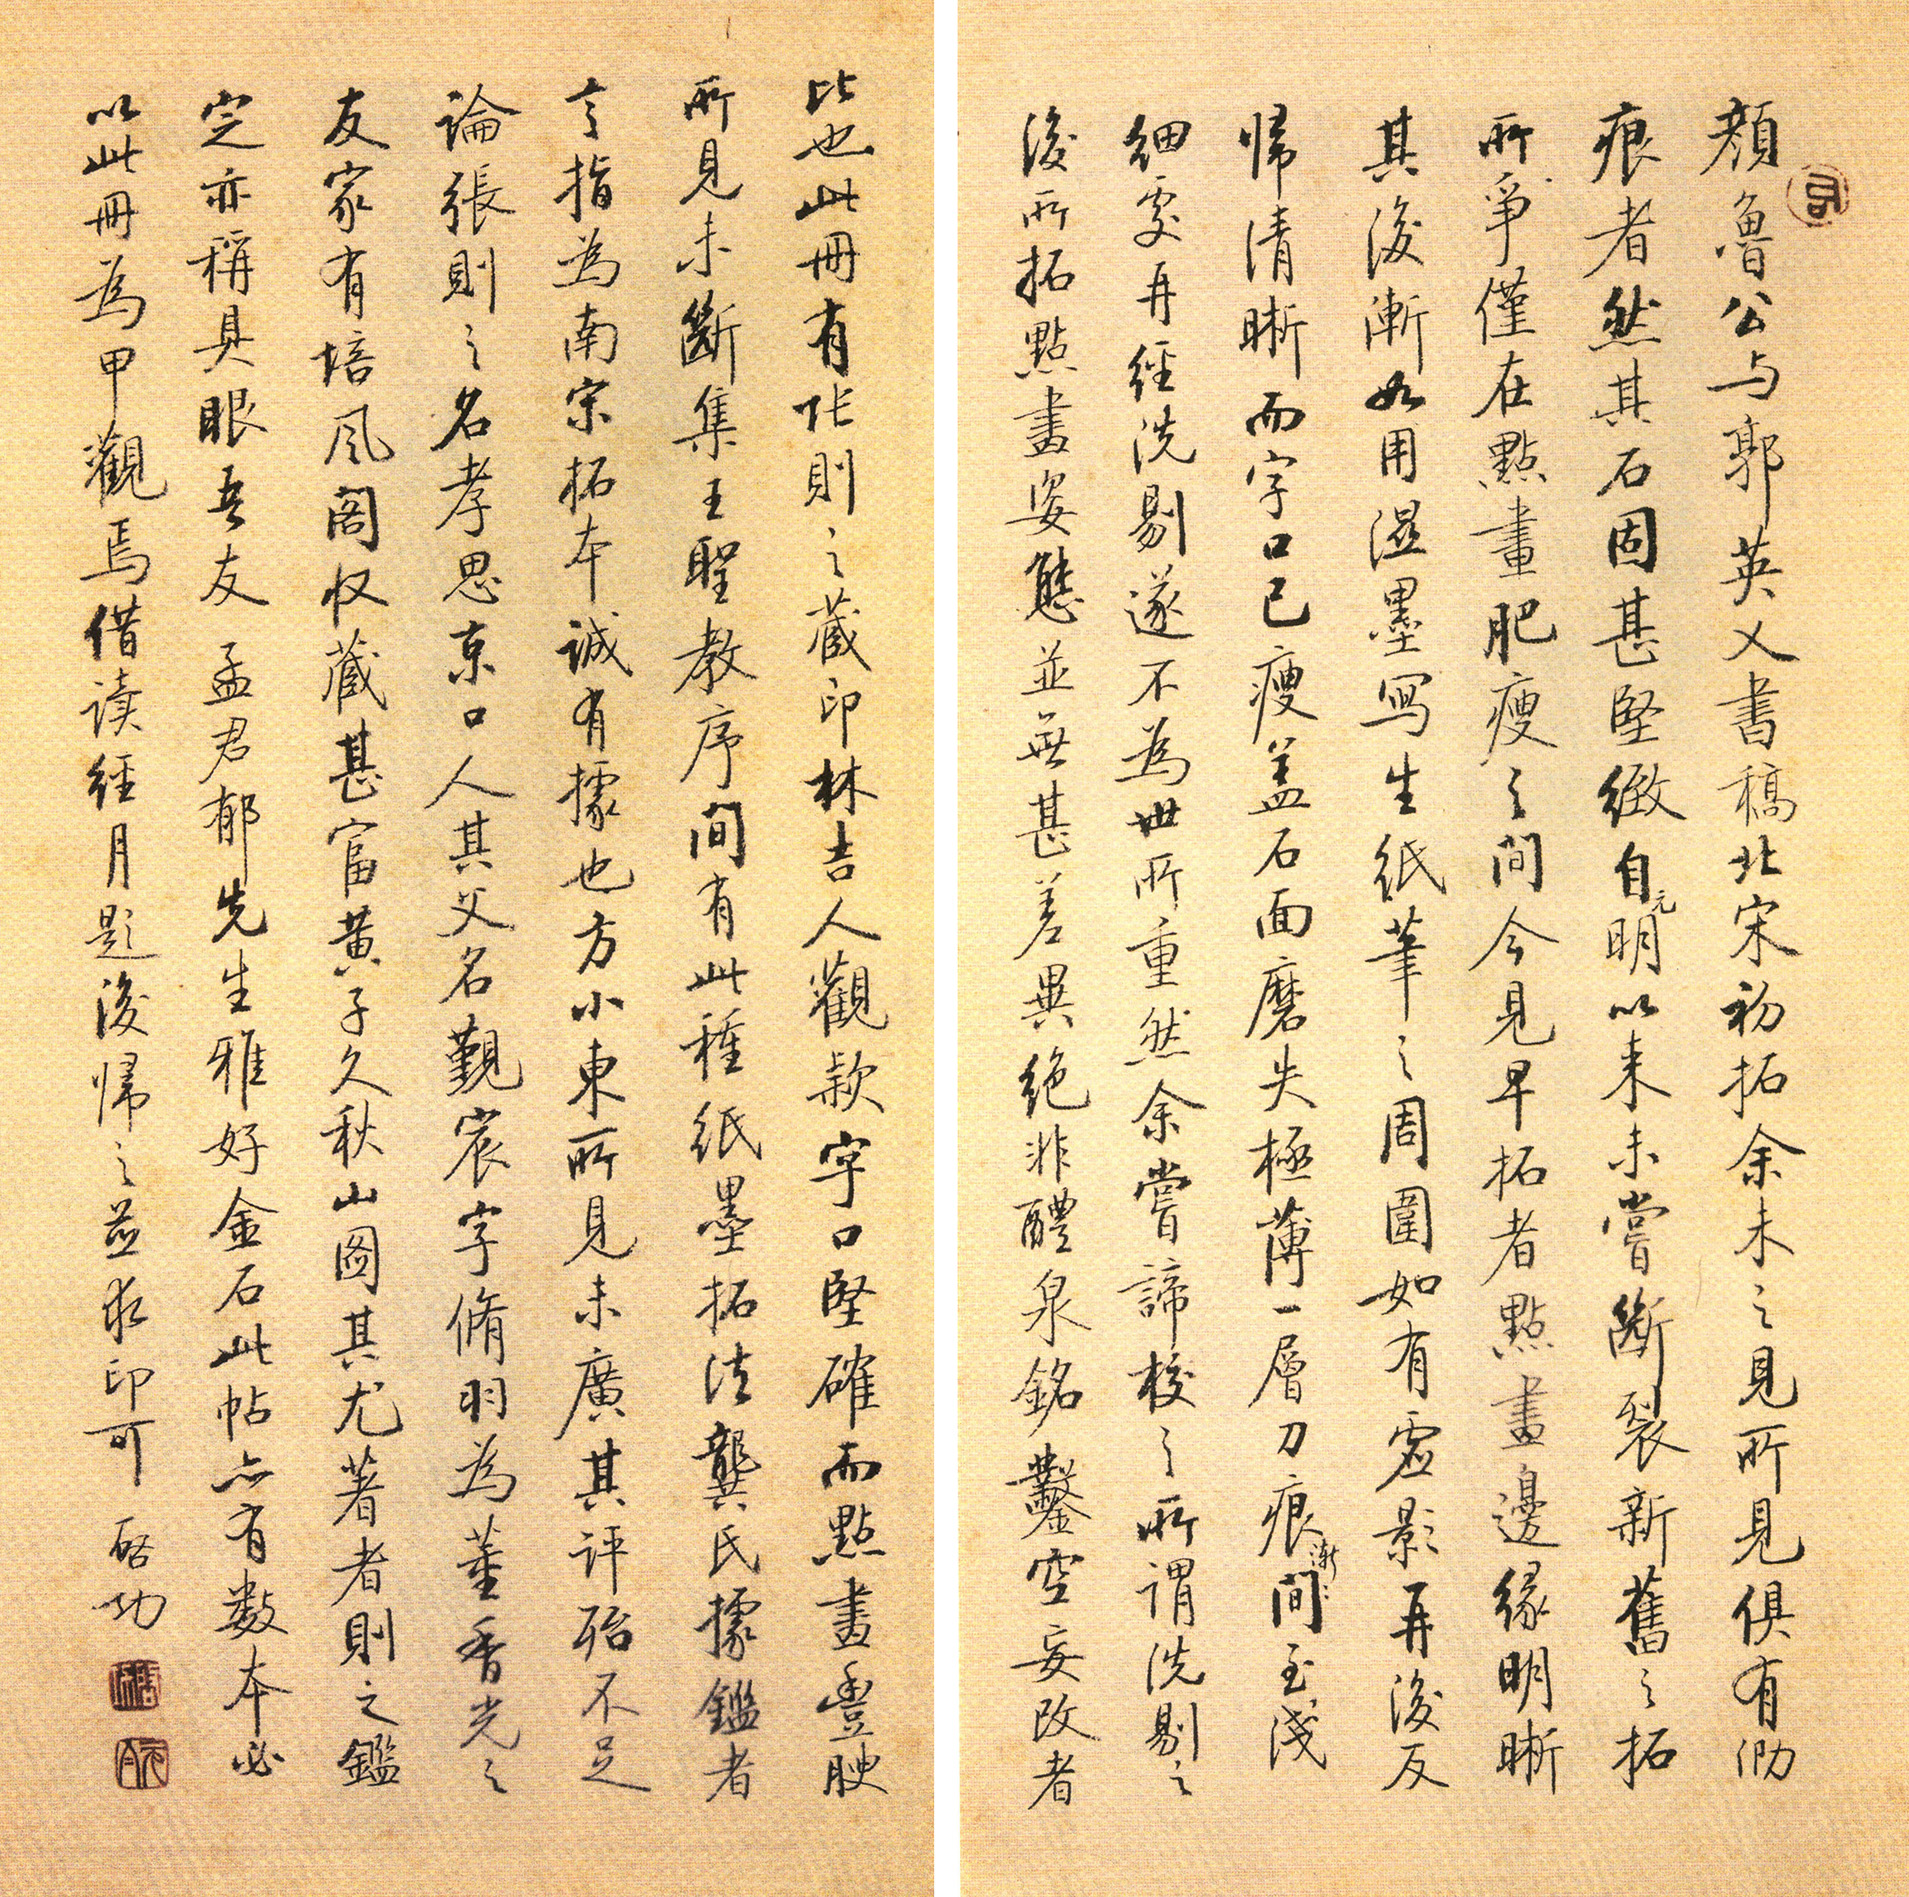 顏魯公与郭英乂書稿北宋初拓余未之見所見俱有泐
痕者然其石固甚堅緻自元明以来未嘗斷裂新舊之拓
所爭僅在點畫肥瘦之間今見早拓者點畫邊緣明晰
其後漸如用濕墨寫生紙筆之周圍如有虛影再後反
歸清晰而字口已瘦盖石面磨失極薄一層刀痕漸間至淺
細處再經洗剔遂不為世所重然余嘗諦校之所謂洗剔之
後所拓點畫姿態並無甚差異絕非醴泉銘鑿空妄改者
比也此冊有張則之蔵印林吉人觀款字口堅確而點畫豐腴
所見未斷集王聖教序間有此種紙墨拓法龔氏據鑑者
言指為南宋拓本誠有據也方小東所見未廣其評殆不足
論張則之名孝思京口人其父名覲宸字脩羽為董香光之
友家有培風阁收蔵甚富黄子久秋山图其尤著者則之鑑
定亦稱具眼吾友 孟君郁先生雅好金石此帖亦有數本必
以此冊為甲觀焉借读經月題後歸之並求印可 启功